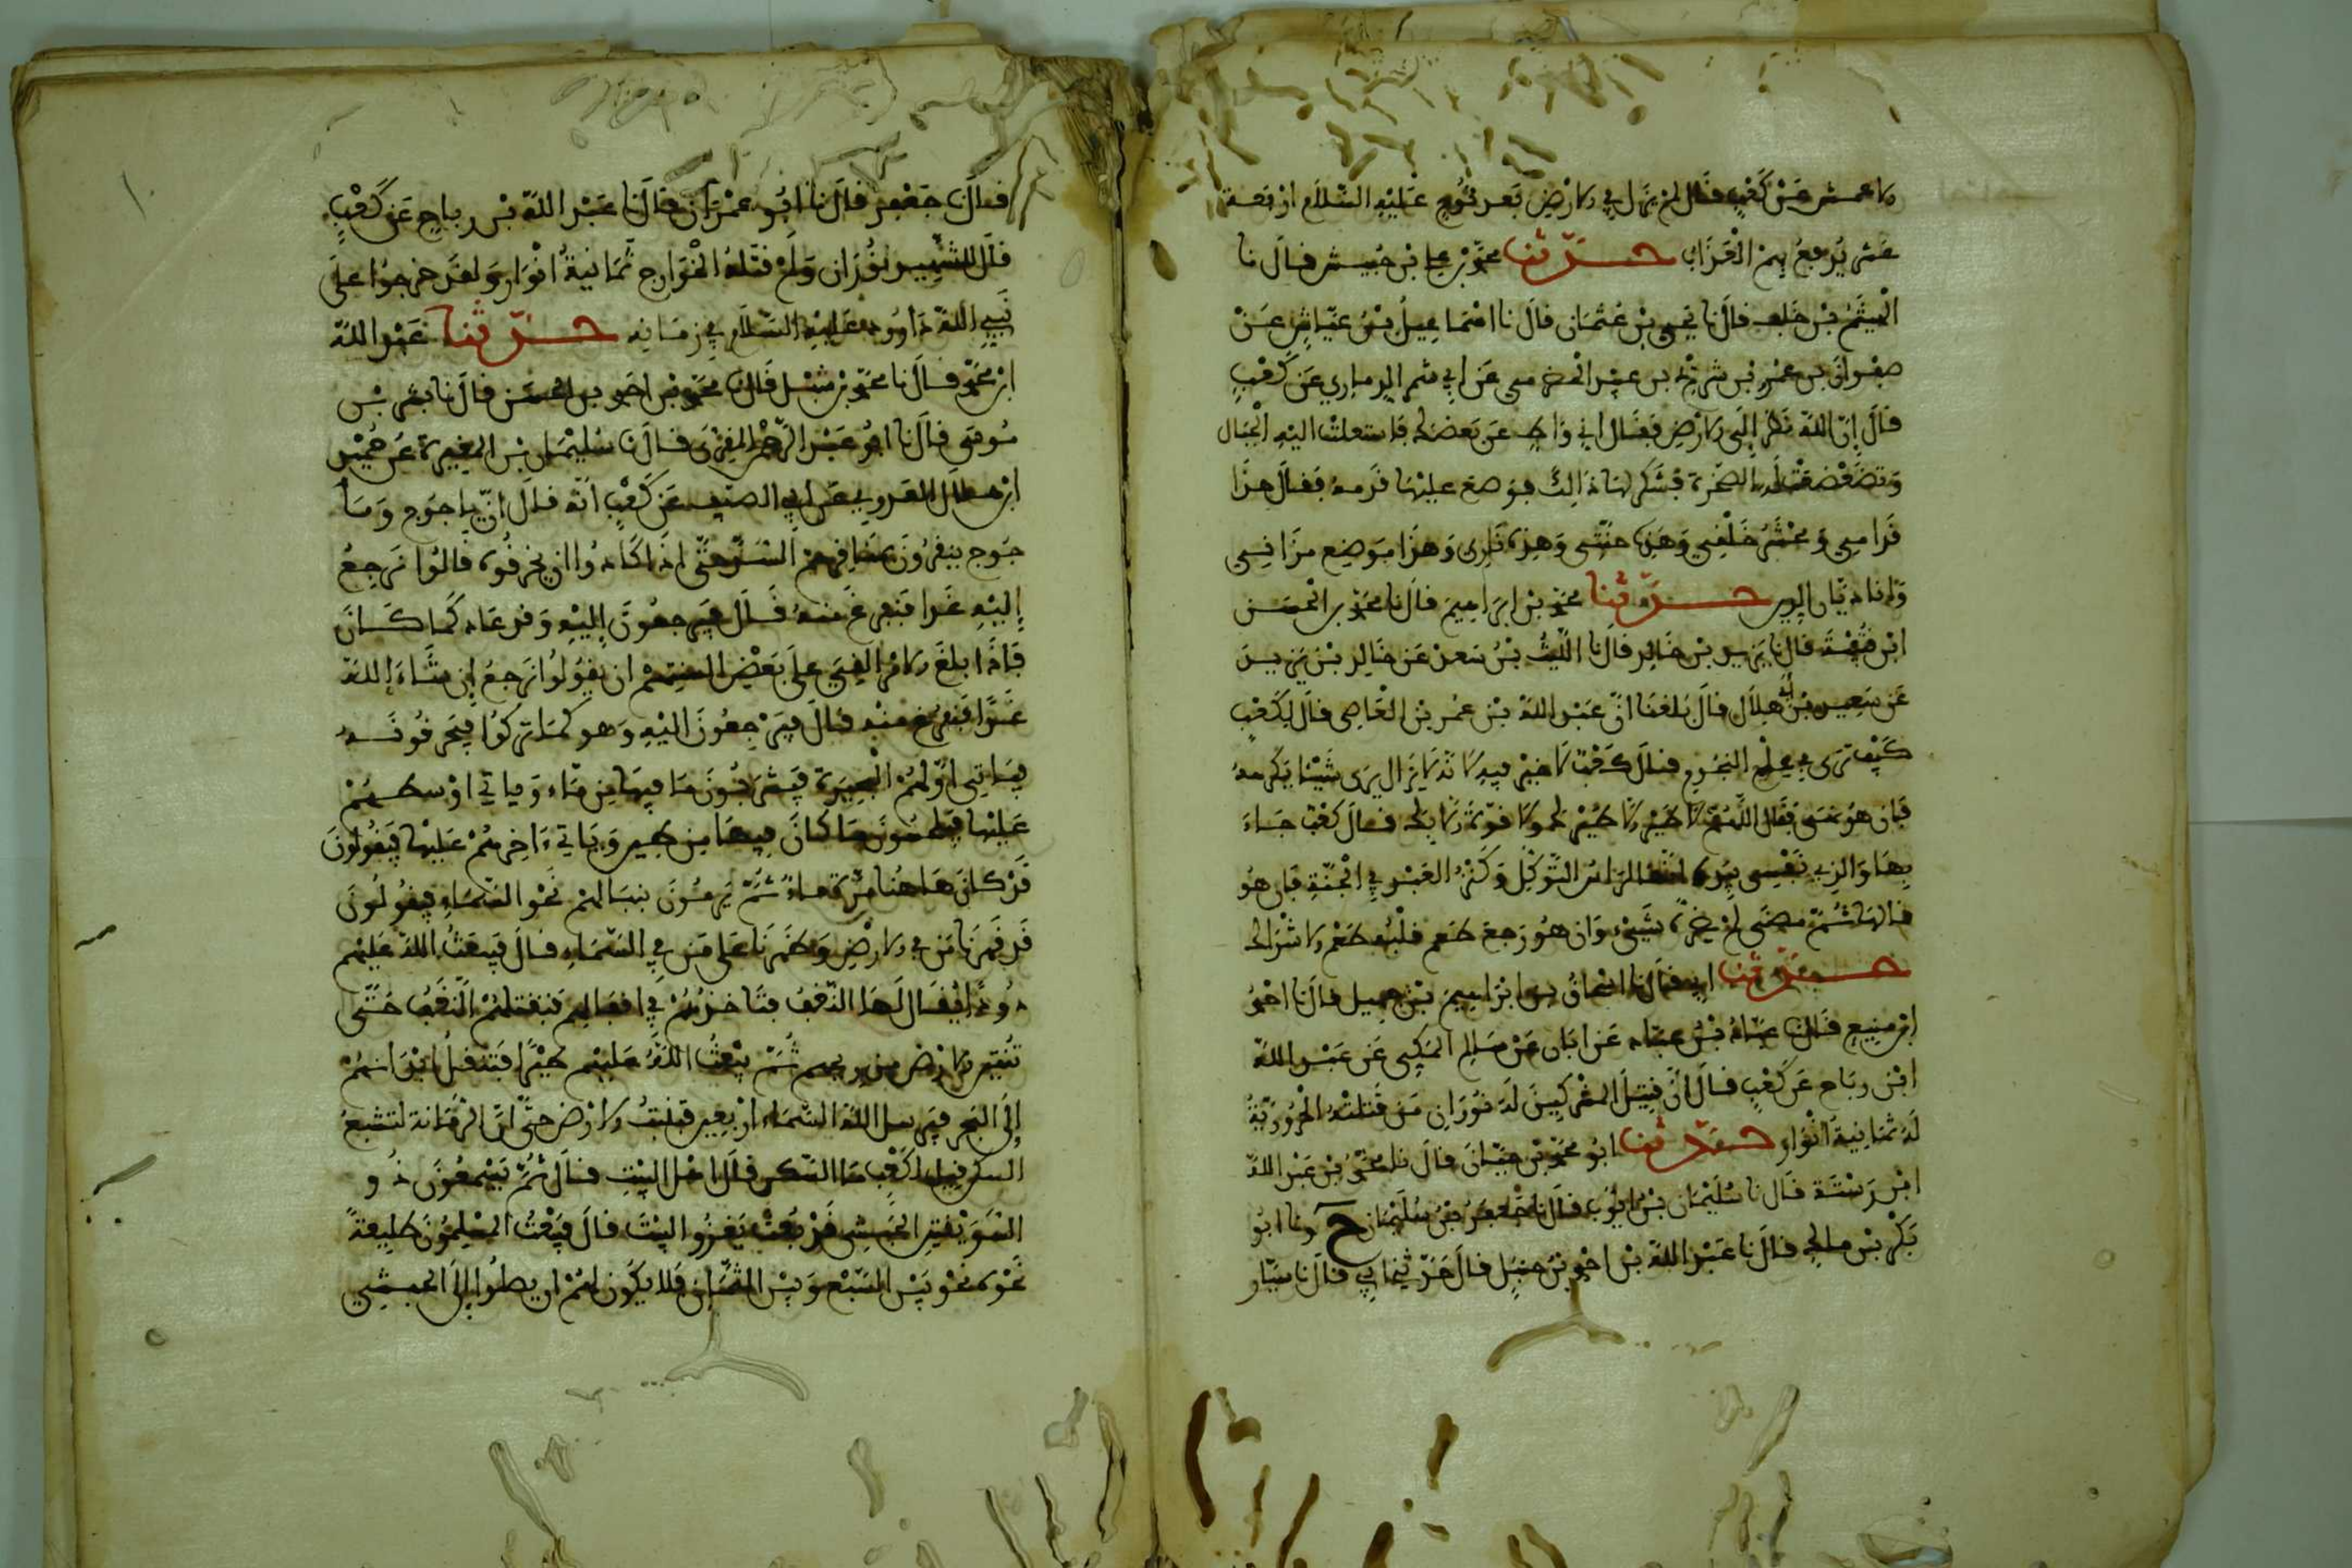 الاعمش عن كعب قال لم يزل في الارض بعد نوح عليه السلام اربعة
عشر يدفع بهم العذاب حدثنا محمد بن علي بن حبيش قال نا
الهيثم بن خلف قال نا يحيى بن عثمان قال نا اسماعيل بن عياش عن
صفوان بن عمرو بن شريح بن عبيد الحضرمي عن ابي الذماري عن كعب
قال إن الله نظر إلى الارض فقال اني واط على بعضك فاستعلت اليه الجبال
وتضعضعت له الصخرة فشكر لها ذالك فوضع عليها قدمه فقال هذا
مقامي ومحشر خلقي وهذه جنتي وهذه ناري وهذا موضع ميزاني
وانا ديان الدين حدثنا محمد بن ابراهيم قال نا محمد بن الحسن
ابن قتيبة قال نا يزيد بن خالد قال نا الليث بن سعد عن خالد بن يزيد
عن سعيد بن أبي هلال قال بلغنا ان عبد الله بن عمرو بن العاصي قال لكعب
كيف ترى في علم النجوم قال كعب لا خير فيه لا تزال يرى شيئا يكرهه
فإن هو مضى فقال اللهم لا طير الا طيرك ولا قوة الا بك فقال كعب جاء
بها والذي نفسي بيده انها لراس التوكل وكنز العبد في الجنة فإن هو
قالها ثم مضى لم يضره شيء وان هو رجع طعم قلبه طعم الاشراك
حدثنا ابي قال نا اسحاق بن ابراهيم بن جميل قال نا احمد
ابن منيع قال نا عباد بن عباد عن ابان عن مسلم المكي عن عبد الله
ابن رباح عن كعب قال ان قتيل المشركين له نوران ومن قتلته الحرورية
له ثمانية انوار حدثنا ابو محمد بن حيان قال نا محمد بن عبد الله
ابن رستة قال نا سليمان بن ايوب قال نا جعفر بن سليمان ح ونا ابو
بكر بن مالك قال نا عبد الله بن احمد بن حنبل قال حدثني ابي قال نا سيار
قال نا جعفر قال نا ابو عمران قال نا عبد الله بن رباح عن كعب
قال للشهيد نوران ولمن قتله الخوارج ثمانية انوار ولقد خرجوا على
نبي الله داوود عليه السلام في زمانه حدثنا عبد الله
ابن محمد قال نا محمد بن شبل قال نا محمد بن احمد بن الحسن قال نا بشر بن
موسى قال نا ابو عبد الرحمن المقري قال نا سليمان بن المغيرة عن حميد
ابن هلال العدوي عن ابي الضيف عن كعب انه قال ان ياجوج وما
جوج ينقرون بمناقرهم السد حتى اذا كادوا ان يخرقوه قالوا نرجع
إليه غدا فنفرغ منه قال فيرجعون إليه وقد عاد كما كان
فإذا بلغ الامر القي على بعض السنتهم ان يقولوا نرجع إن شاء الله
غدا فنفرغ منه قال فيرجعون اليه وهو كما تركوا فيخرقونه
فياتي اولهم البحيرة فيشربون ما فيها من ماء وياتي اوسطهم
عليها فيلحسون ما كان فيها من طين وياتي ءاخرهم عليها فيقولون
قد كان هاهنا مرة ماء ثم يرمون بنبالهم نحو السماء فيقولون
قد قهرنا من في الارض وظهرنا على من في السماء قال فيبعث الله عليهم
دودا يقال لها النغف فتاخذهم في اقفائهم فيقتلهم النغف حتى
تنتن الارض من ريحهم ثم يبعث الله عليهم طيرا فتنقل ابدانهم
إلى البحر فيرسل الله السماء اربعين فتنبت الارض حتى ان الرمانة لتشبع
السكن قيل لكعب ما السكن قال اهل البيت قال ثم يسمعون ذو
السويقتين الحبشي قد بعث يغزو البيت قال فيبعث المسلمون طليعة
نحوه نحو بين السبع وبين الثمان فلا يكون لهم ان يصلوا إلى الحبشي